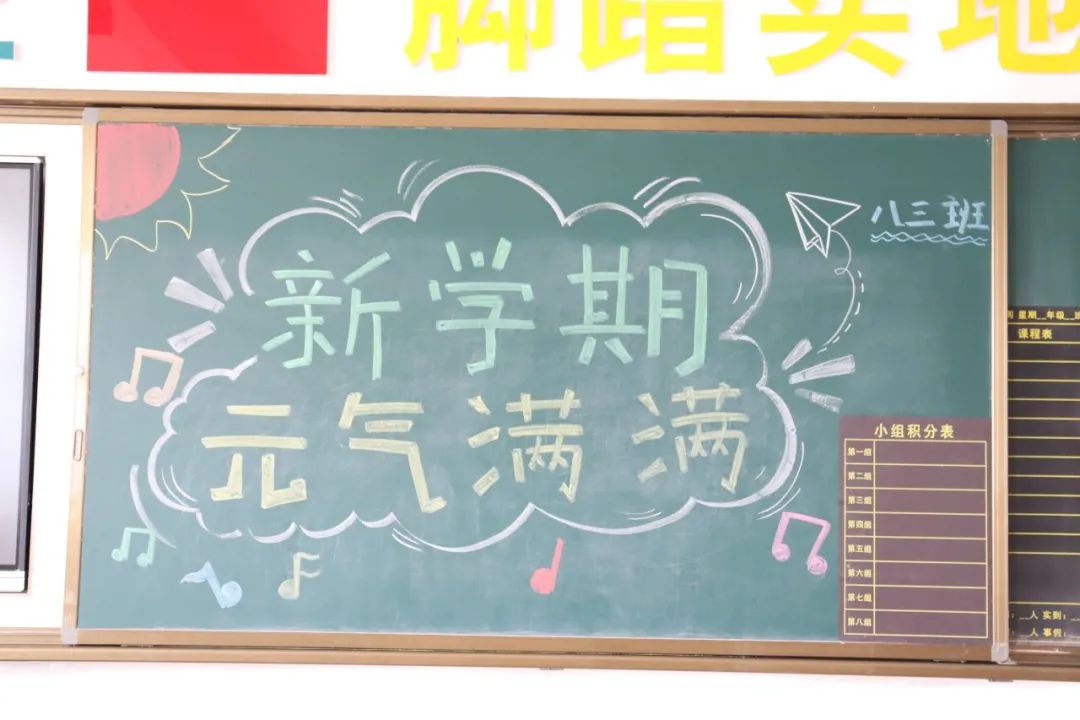 脚踏实地
八三班
新学期
元气满满
小组积分表
第一组
第二组
第三组
第四组
第五组
第六组
第七组
第八组
星期__年级__班
课程表
人 实到:
人 事假: